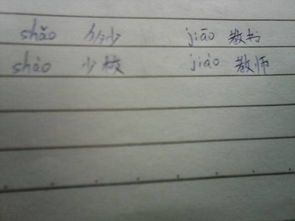 shǎo 多少 jiāo 教书
shào 少校 jiào 教师